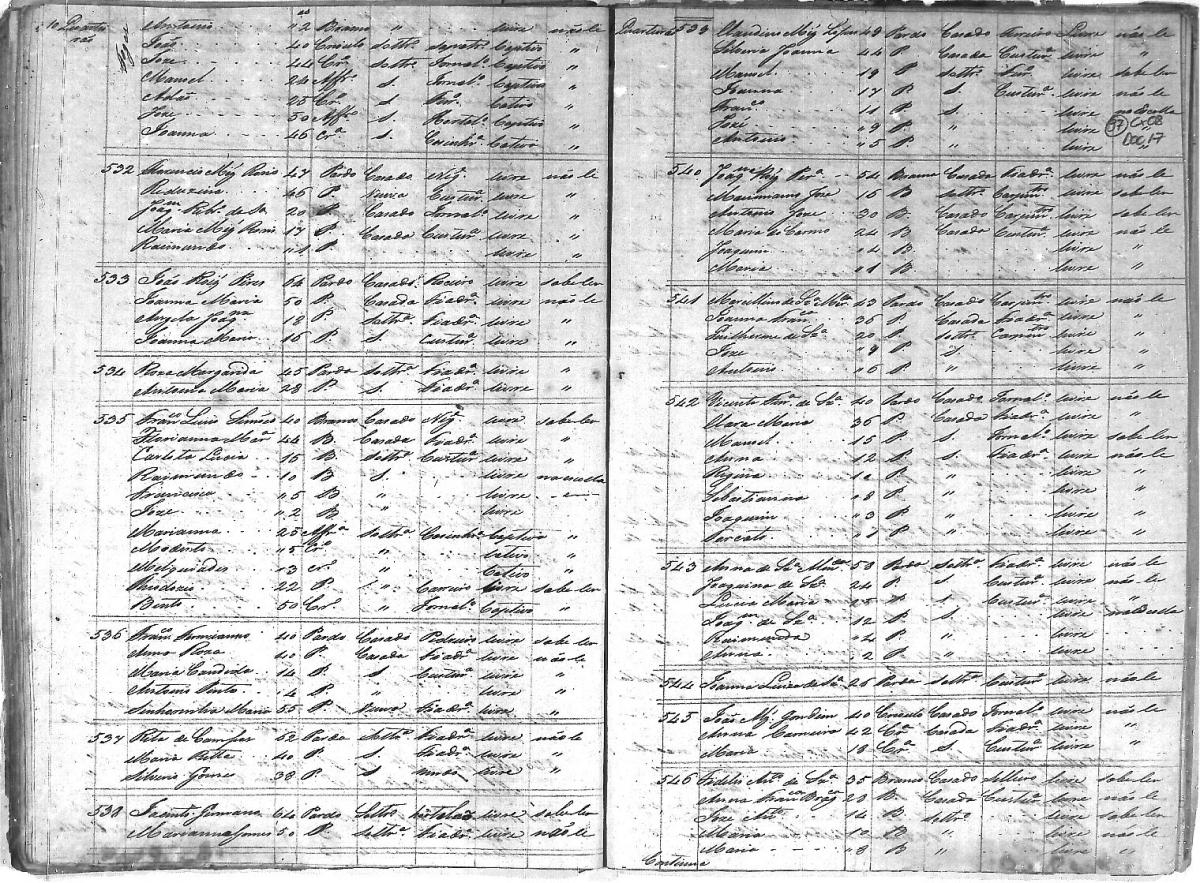 10 Quarteirão
Antonio 12 Branco " livre não le
João 40 Creoulo Soltr.º Sapatr.º Captivo "
Jose 44 Cr.º Soltr.º Jornal.º Captivo "
Manoel 24 Afr.º S. Jornal.º Captivo "
Adão 25 Cr.º S Fer.º Cativo "
Jose 50 Afr.º S. Hortel.º Captivo "
Joanna 46 Cr.ª Cosinh.ª Cativo "
532 47 Pardo Casado Neg.e livre não le
46 P. Custur.ª livre "
Joaq.m Rib.º de Sa 20 P. Casado Jornal.º livre "
Maria 17 P. Casada Custur.ª livre "
Raimundo "1 P. livre "
533 João Roiz Pires 64 Pardo Casado Roceiro livre sabe ler
Joanna Maria 50 P. Casada Fiadr.ª livre não le
Angela Joaq.na 18 P. Soltr.ª Fiadr.ª livre "
Joanna Maria 16 P. S. Custur.ª livre "
534 Roza Margarida 45 Parda Soltr.ª Fiadr.ª livre não le
Antonia Maria 23 P. S. Fiadr.ª livre "
535 Fran.co Luis 40 Branco Casado Neg.e livre sabe ler
Florianna 44 B. Casada Fiadr.ª livre "
Carlota Lucia 15 B. Soltr.ª Custur.ª livre "
Raimundo 10 B S. livre na escolla
Francisca "5 B " livre
Jose "2 B " livre
Marianna 25 Afr.ª Soltr.ª Cosinhr.ª Captivo "
Modesto "5 Cr.º " Cativo "
Melquiades 13 Cr.º " Cativo "
22 P. " livre sabe ler
Bento 50 Cr.º " Jornal.º Captivo "
536 Fran.co 40 Pardo Casado Pedreiro livre sabe ler
Anna Roza 40 P. Casada Fiadr.ª livre não le
Maria Candida 14 P. S Custur.ª livre "
Antonio Pinto "4 P. " livre "
Maria 55 P. Viuva Fiadr.ª livre "
537 Rita de Campos 62 Parda Soltr.ª Fiadr.ª livre não le
Maria Rita 40 P. S. Fiadr.ª livre "
Silverio Gomes 38 P. S livre "
538 Jacinto 64 Pardo Soltro livre sabe ler
Marianna Gomes 50 P. Soltr.ª Fiadr.ª livre não le
Quarteirão 539 Claudino 49 Pardo Casado Livre não le
Silveria Joanna 44 P. Casada Custur.ª livre "
Manoel 19 P. Soltr.º livre sabe ler
Joanna 17 P. S. Custur.ª livre não le
Fran.co 11 P S. livre na escolla
José "9 P. " livre "
Antonio "5 P. " livre "
37 Cx 08
Doc. 17
540 54 Branca Casada Fiadr.ª livre não le
Jose 16 B Soltr.º Carpintr.º livre sabe ler
Antonio Jose 30 B. Casado Carpintr.º livre sabe ler
Maria do Carmo 24 B Casada Custur.ª livre não le
Joaquim "4 B " livre "
Maria "1 B livre "
541 Marcellino de S.ª 43 Pardo Casado Carpintr.º livre não le
Joanna Fran.ca 36 P. Casada Fiadr.ª livre "
Guilherme de S.ª 20 P. Soltr.º livre "
Jose "9 P S livre "
Antonio "6 P. " livre "
542 Vicente 40 Pardo Casado Jornal.º livre não le
Clara Maria 36 P. Casada Fiadr.ª livre "
Manoel 15 P. S Jornal.º livre sabe ler
Anna 12 P. S. Fiadr.ª livre não le
Regina P. " livre "
Sebastianna "8 P. " livre "
Joaquim "3 P " livre "
"1 P " livre "
543 Anna de S.ª 50 Parda Soltr.ª Fiadr.ª livre não le
Joaquina de S.ª 24 P. S Custur.ª livre não le
Lucia Maria P. S Custur.ª livre "
Joaq.m de S.ª 12 P. S. livre na escolla
Raimunda "4 P. " livre
Anna "2 P. " livre
544 Joanna Luiza de S.ª 26 Parda Soltr.ª Custur.ª livre não le
545 João Gondim 40 Creoulo Casado Jornal.º livre não le
Anna Carneiro 42 Cr.ª Casada Fiadr.ª livre "
Maria 18 Cr.ª S Custur.ª livre "
546 Fidelis 35 Branco Casado Selleiro livre sabe ler
Anna Fran.ca 28 B. Casada Custur.ª livre não le
Jose 14 B Soltr.º livre sabe ler
Maria 10 B " livre não le
Maria "8 B " livre "
Continua